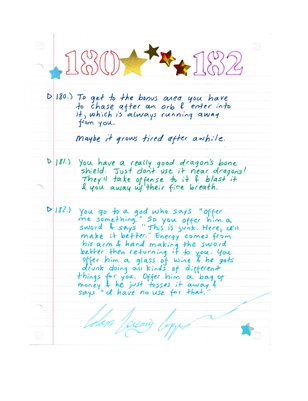 180 182
180.) To get to the bonus area you have
to chase after an orb & enter into
it, which is always running away
from you.
Maybe it grows tired after awhile.
181.) You have a really good dragon's bone
shield. Just don't use it near dragons!
They'll take offense to it & blast it
& you away w/ their fire breath.
182.) You go to a god who says "offer
me something." So you offer him a
sword & says "This is junk. Here, I can
make it better." Energy comes from
his arm & hand making the sword
better then returning it to you. You
offer him a glass of wine & he gets
drunk doing all kinds of different
things for you. Offer him a bag of
money & he just tosses it away &
says "I have no use for that."